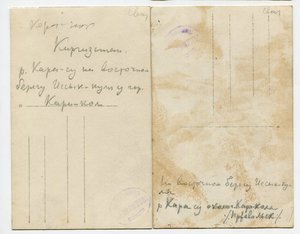 Киргизстан.
р. Кара-су на восточном
берегу Иссык-куля у гор.
Кара-кол
На восточном берегу Иссык-ку-
ля
р. Кара-су около Каракола
/Пржевальск/